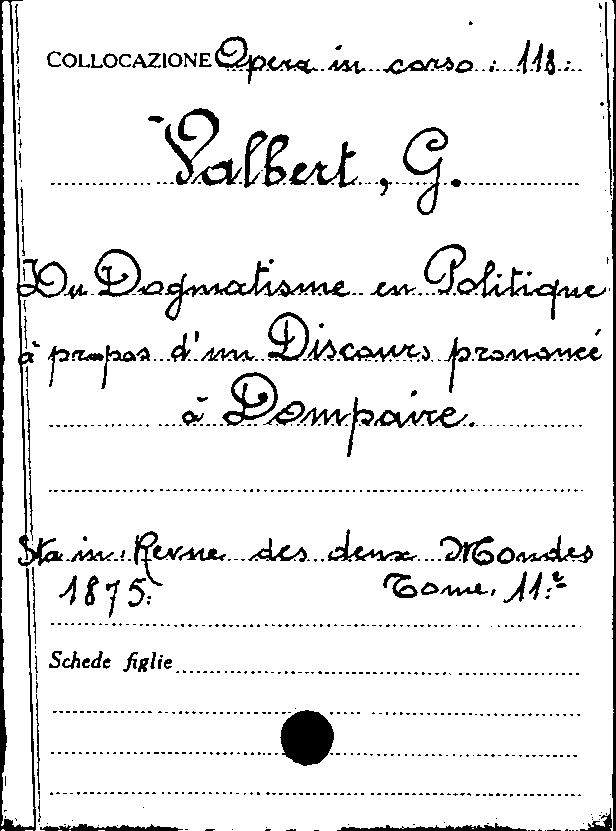 COLLOCAZIONE Opera in corso : 118.
Valbert, G.
Du Dogmatisme en Politique
à propos d'un Discours prononcé
à Dompaire.
Sta in: Revue des deux Mondes
1875. Tome. 11.e
Schede figlie